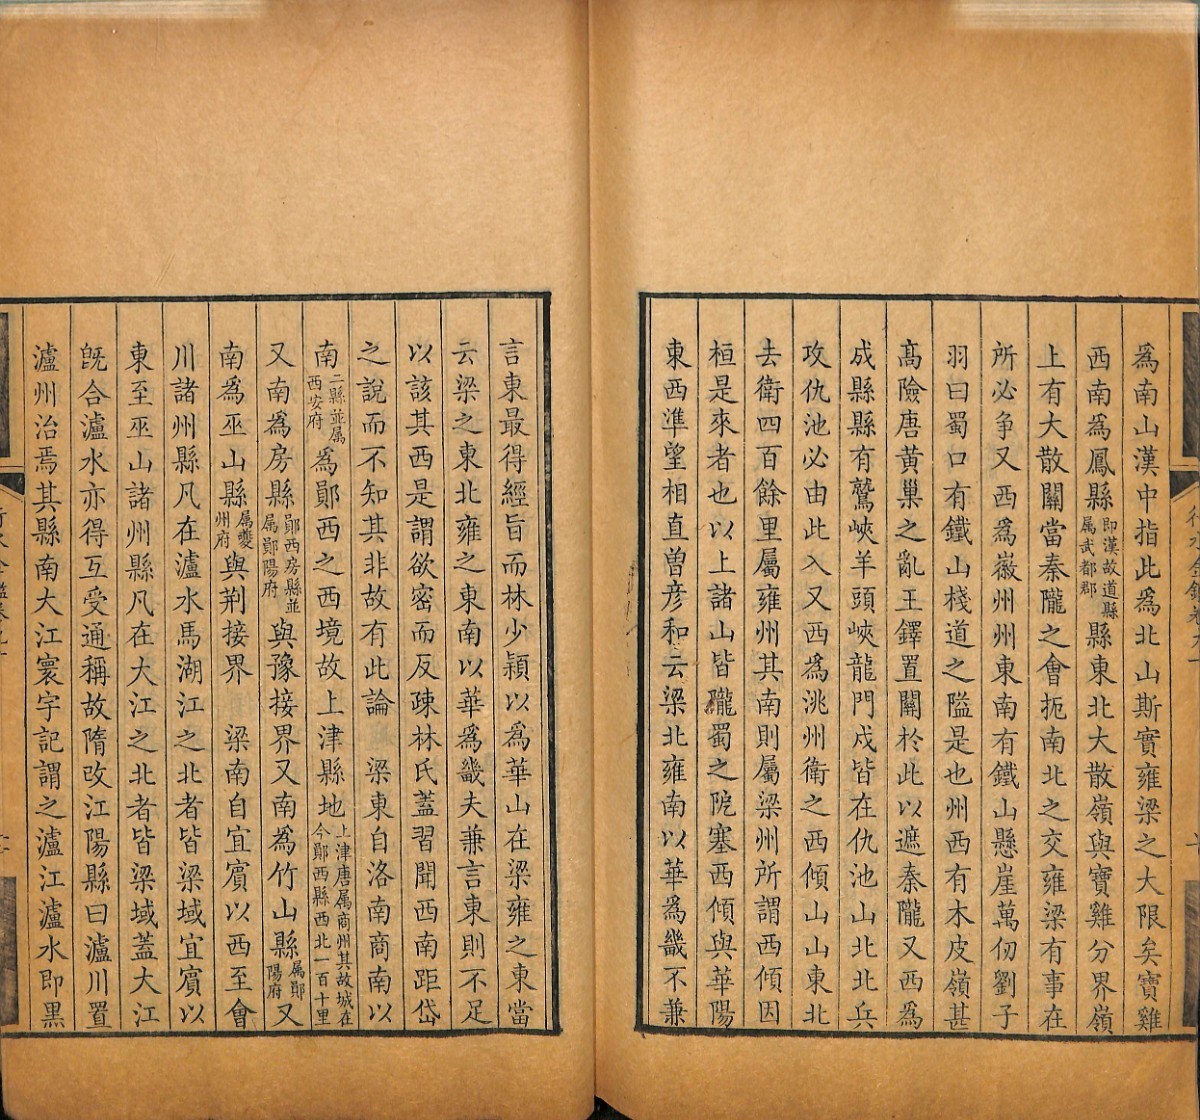 為南山漢中指此為北山斯實雍梁之大限矣寶雞
西南爲鳳縣即漢故道縣屬武都郡縣東北大散嶺與寶雞分界嶺
上有大散關當秦隴之會扼南北之交雍梁有事在
所必争又西爲徽州州東南有鐵山懸崖萬仞劉子
羽曰蜀口有鐵山棧道之隘是也州西有木皮嶺甚
髙險唐黄巢之亂王鐸置關於此以遮秦隴又西爲
成縣縣有鷲峽羊頭峽龍門戍皆在仇池山北北兵
攻仇池必由此入又西爲洮州衛之西傾山山東北
去衛四百餘里屬雍州其南則屬梁州所謂西傾因
桓是來者也以上諸山皆隴蜀之阸塞西傾與華陽
東西準望相直曽彦和云梁北雍南以華爲畿不兼
言東最得經旨而林少穎以爲華山在梁雍之東當
云梁之東北雍之東南以華爲畿夫兼言東則不足
以該其西是謂欲密而反疎林氏蓋習聞西南距岱
之說而不知其非故有此論　梁東自洛南商南以
南二縣並属西安府爲鄖西之西境故上津縣地上津唐属商州其故城在今鄖西縣西北一百十里
又南爲房縣鄖西房縣並属鄖陽府與豫接界又南爲竹山縣属鄖陽府又
南爲巫山縣属夔州府與荆接界　梁南自宜賓以西至會
川諸州縣凡在瀘水馬湖江之北者皆梁域宜賓以
東至巫山諸州縣凡在大江之北者皆梁域蓋大江
旣合瀘水亦得互受通稱故隋改江陽縣曰瀘川置
瀘州治焉其縣南大江寰宇記謂之瀘江瀘水即黒